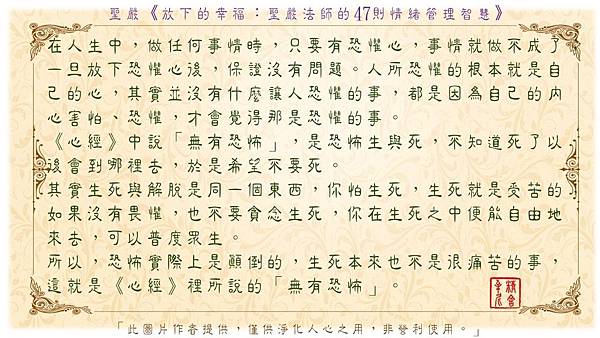 聖嚴《放下的幸福：聖嚴法師的47則情緒管理智慧》
在人生中，做任何事情時，只要有恐懼心，事情就做不成了
一旦放下恐懼心後，保證沒有問題。人所恐懼的根本就是自
己的心，其實並沒有什麼讓人恐懼的事，都是因為自己的內
心害怕、恐懼，才會覺得那是恐懼的事。
《心經》中說「無有恐怖」，是恐怖生與死，不知道死了以
後會到哪裡去，於是希望不要死。
其實生死與解脫是同一個東西，你怕生死，生死就是受苦的
如果沒有畏懼，也不要貪念生死，你在生死之中便能自由地
來去，可以普度眾生。
所以，恐怖實際上是顛倒的，生死本來也不是很痛苦的事，
這就是《心經》裡所說的「無有恐怖」。
「此圖片作者提供，僅供淨化人心之用，非營利使用。」